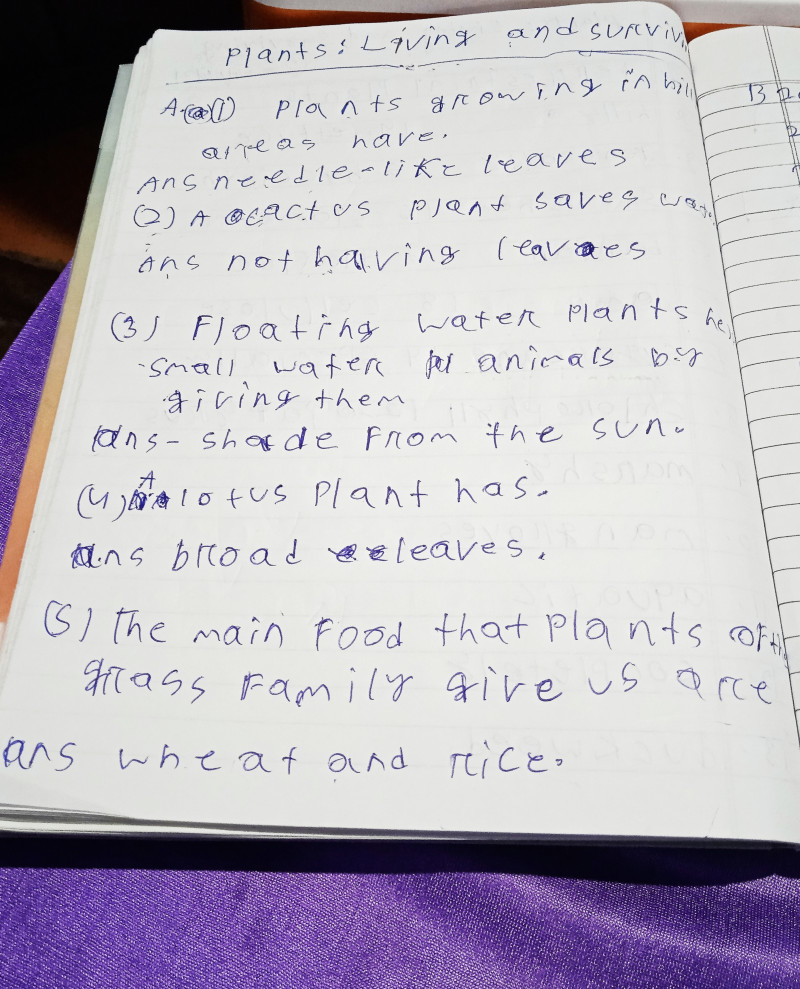 Plants: Living and surviv
A. (1) Plants growing in hil
areas have.
Ans needle-like leaves
(2) A cactus plant saves wat
Ans not having leaves
(3) Floating water plants he
small water animals by
giving them
Ans - shade from the sun.
(4) A lotus plant has.
Ans broad leaves.
(5) The main food that plants of the
grass family give us are
ans wheat and rice.
B
2